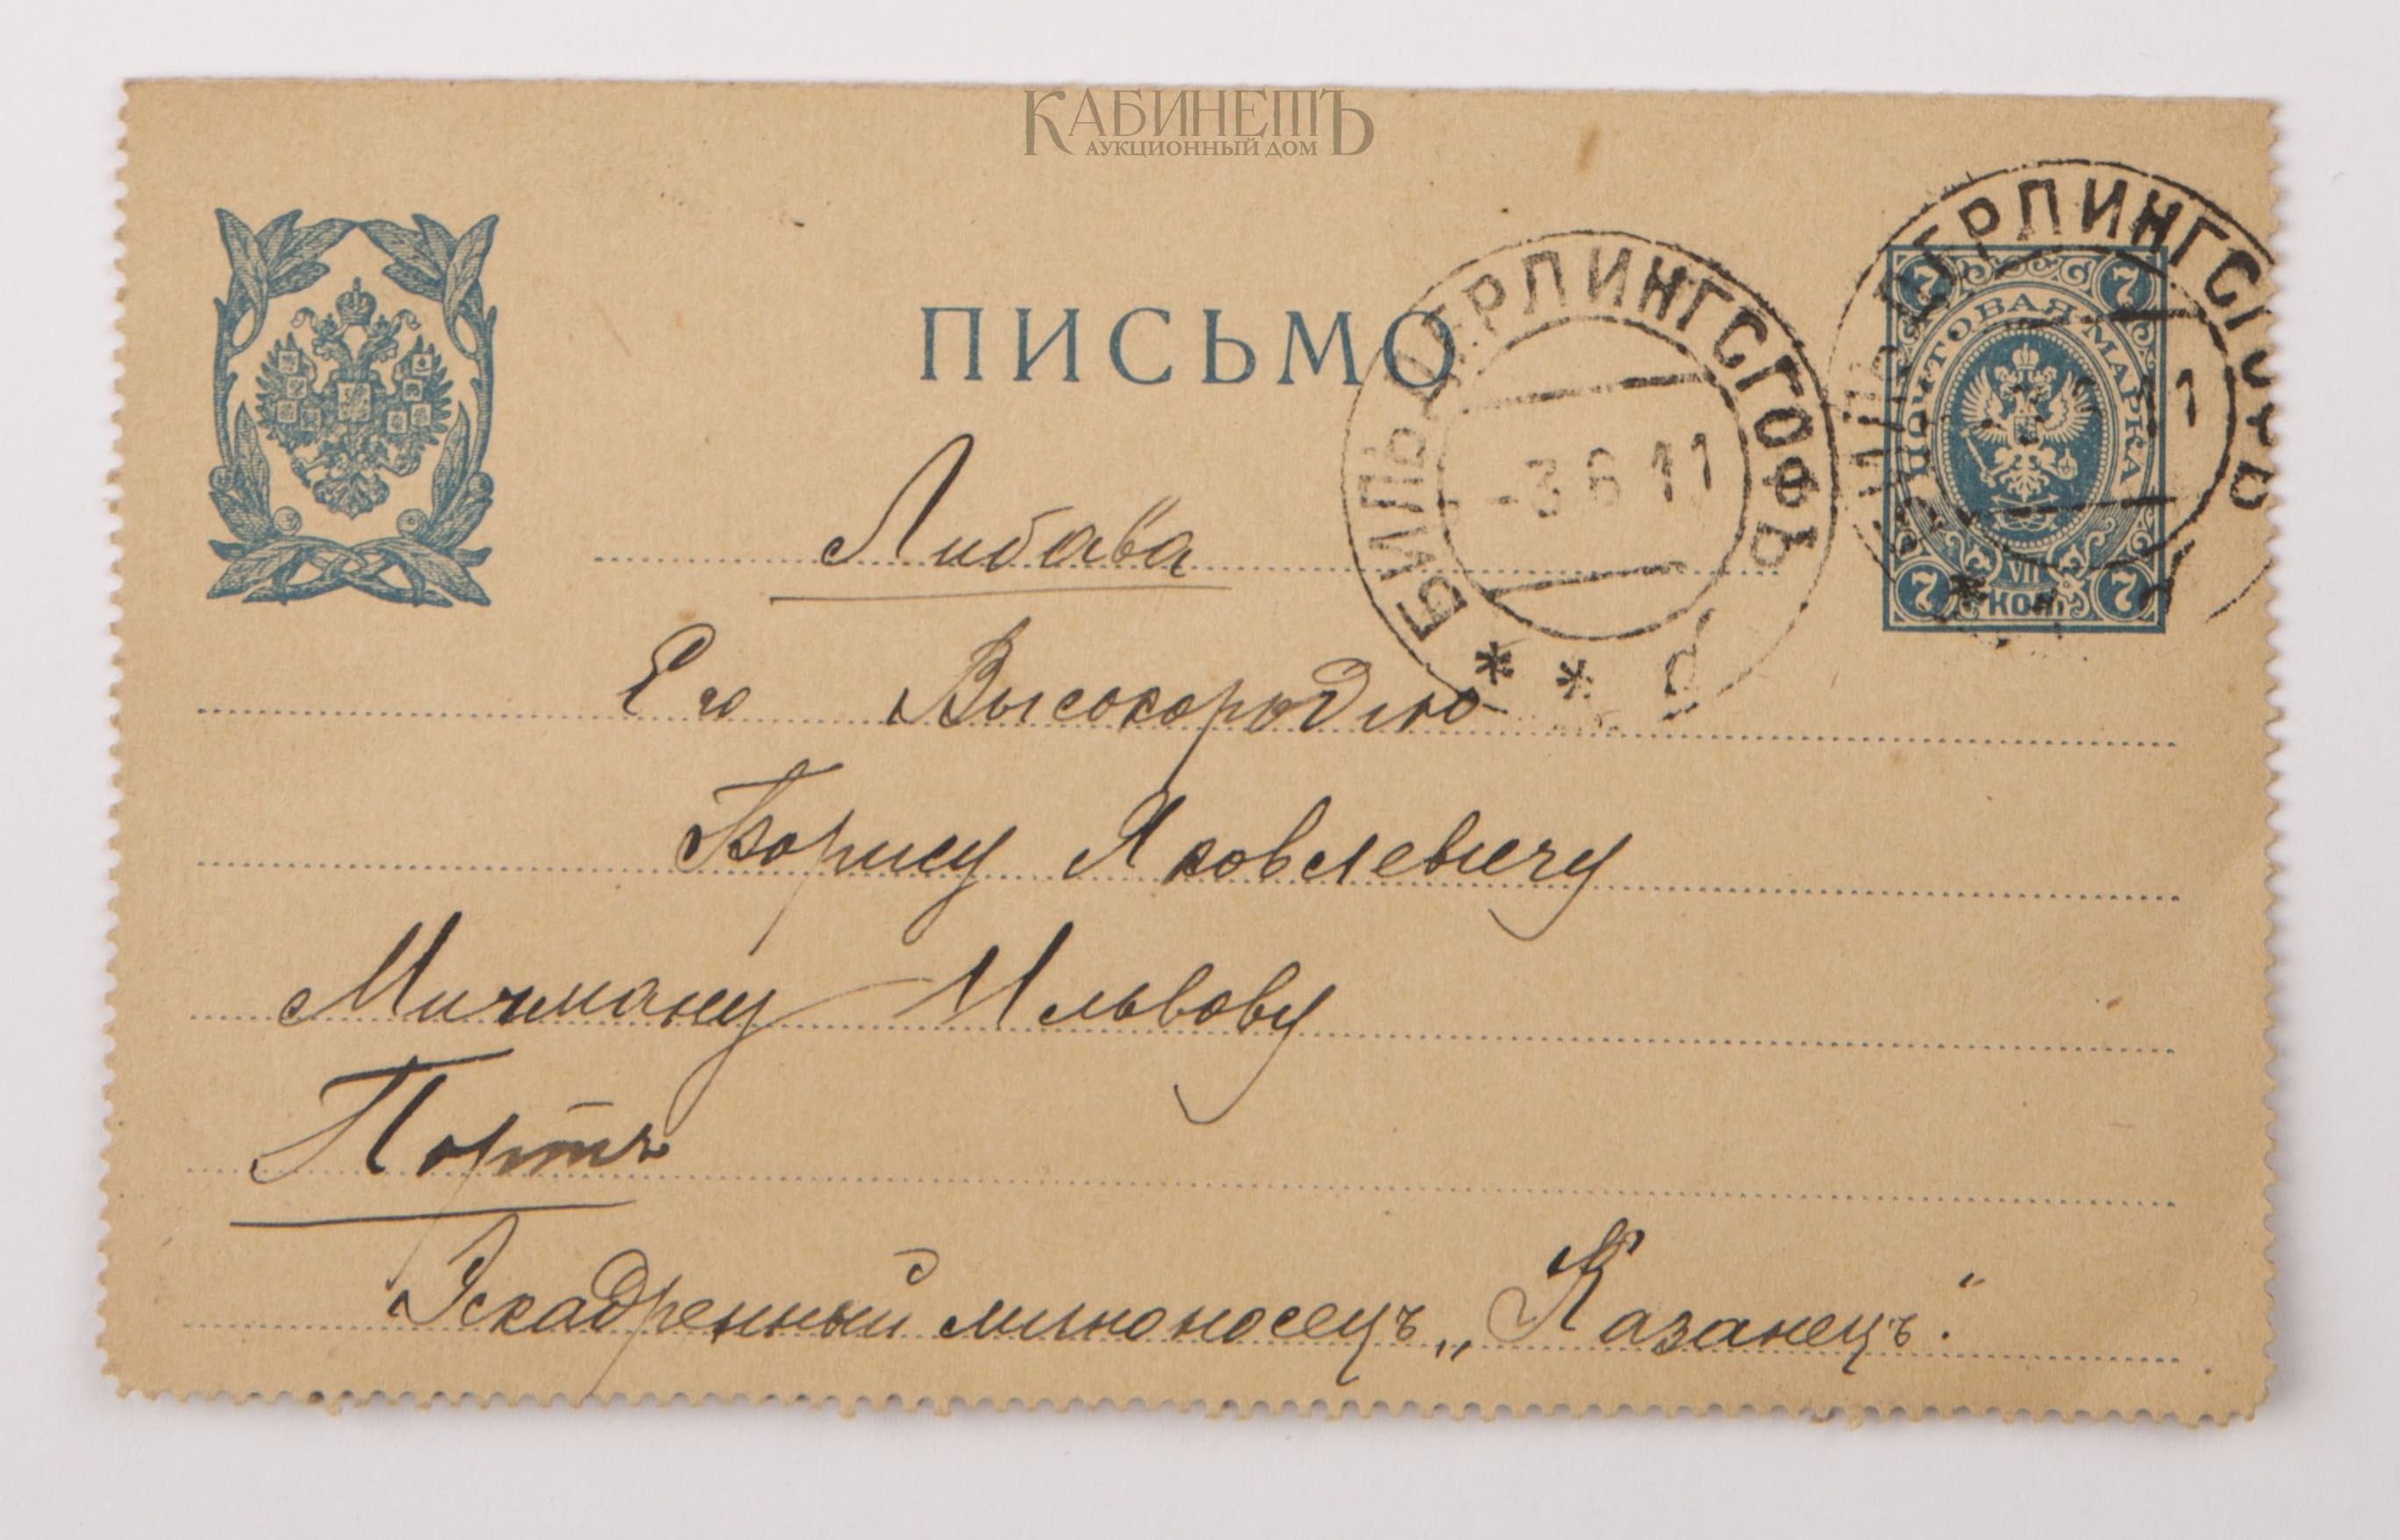 КАБИНЕТЪ
АУКЦИОННЫЙ ДОМ
ПИСЬМО
БИЛЬДЕРЛИНГСГОФЪ
-3 6 11
БИЛЬДЕРЛИНГСГОФЪ
11
7 7
ПОЧТОВАЯ МАРКА
VII
КОП.
7 7
Либава
Его Высокородію
Борису Яковлевичу
Мичману Ильвову
Портъ
Эскадренный миноносецъ „Казанецъ“.